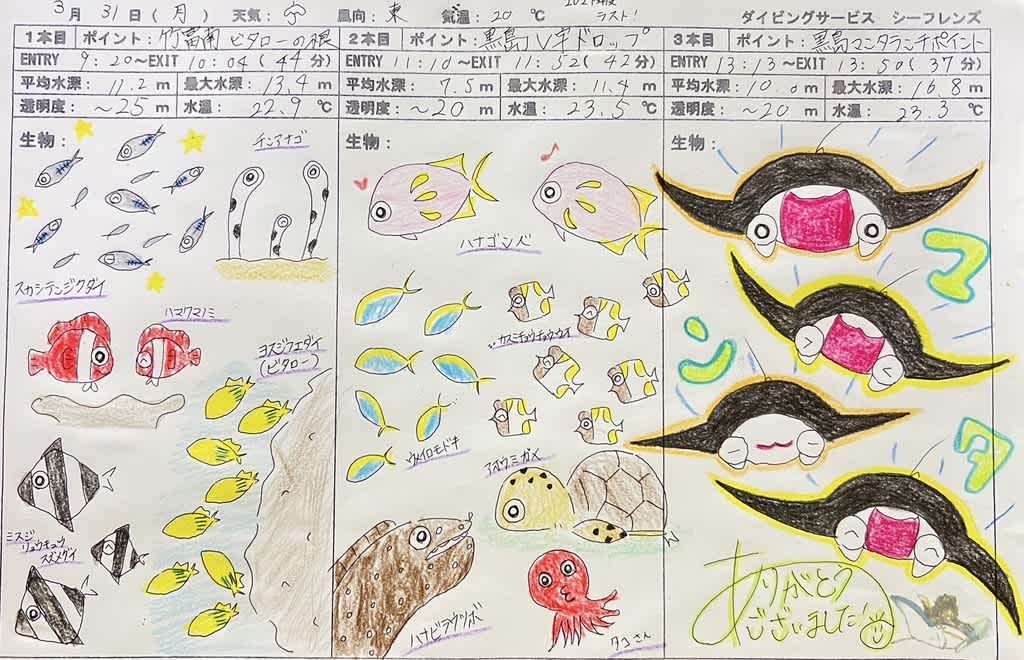 3月 31日(月) 天気: 風向: 東 気温: 20 ℃ ラスト! ダイビングサービス シーフレンズ
1本目 ポイント: 竹富南 ビタローの根 2本目 ポイント: 黒島V字ドロップ 3本目 ポイント: 黒島マンタランチポイント
ENTRY 9:20~EXIT 10:04(44分) ENTRY 11:10~EXIT 11:52(42分) ENTRY 13:13~EXIT 13:50(37分)
平均水深: 11.2 m 最大水深: 13.4 m 平均水深: 7.5 m 最大水深: 11.4 m 平均水深: 10.0 m 最大水深: 16.8 m
透明度: ~25 m 水温: 22.9 ℃ 透明度: ~20 m 水温: 23.5 ℃ 透明度: ~20 m 水温: 23.3 ℃
生物:
チンアナゴ
スカシテンジクダイ
ハマクマノミ
ヨスジフエダイ
(ビタロー)
ミスジ
リュウキュウ
スズメダイ
生物:
ハナゴンベ
カスミチョウチョウウオ
ウメイロモドキ
アオウミガメ
ハナビラウツボ
タコさん
生物:
マ
ン
タ
ありがとう
ございました!